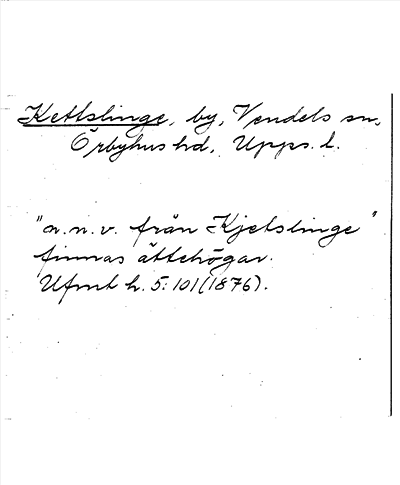 Kettslinge, by, Vendels sn,
Örbyhus hd, Upps. l.
"n.n.v. från Kjetslinge"
finnas ättehögar.
Ufmt h. 5:101 (1876).